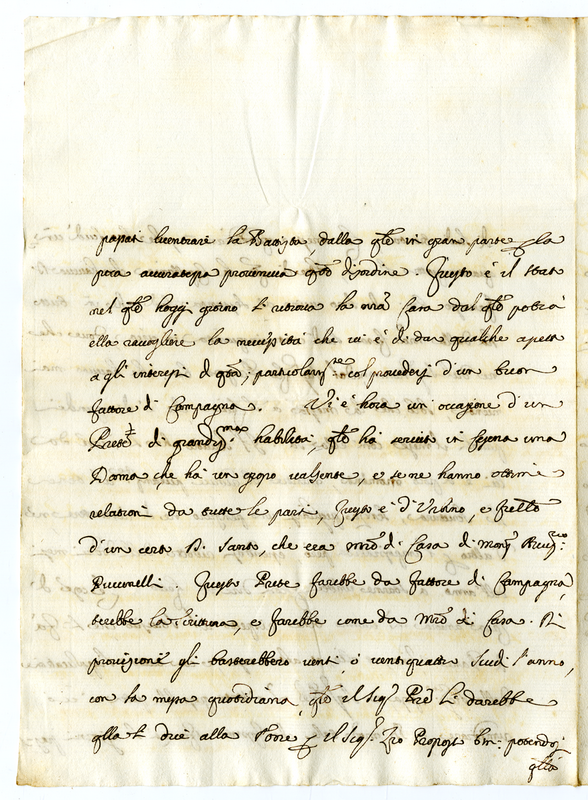 passat lventrare la Battista dalla qle in gran parte p la
poca accuratezza provenuta qsto disordine. Questo è il stat
nel qle hoggi giorno si ritrova la nra Casa dal qle potrà
ella raccogliere la necessità che vi è di dar qualche asett
a gli interessi di qta; particolarmte col provedersi d'un buon
fattore di Campagna. Vi è hora un occasione d'un
Prete di grandisma habilità, qle ha servito in Casa una
Dama che ha un valsente, e se ne hanno ottime
relationi da tutte le parti, Questo è d'Urbino, e frello
d'un certo D. Santo, che era Mro di Casa di Monsr
Puccinelli. Questo Prete farebbe da fattore di Campagna,
terrebbe la scrittura, e farebbe come da Mro di Casa. Di
provisione gli basterebbero venti, ò ventiquattro scudi l'anno,
con la messa quotidiana, qle il Sigr Pre li darebbe
qlla di due alla Torre p il Sigr Zio Propost bm: potendosi
qlla